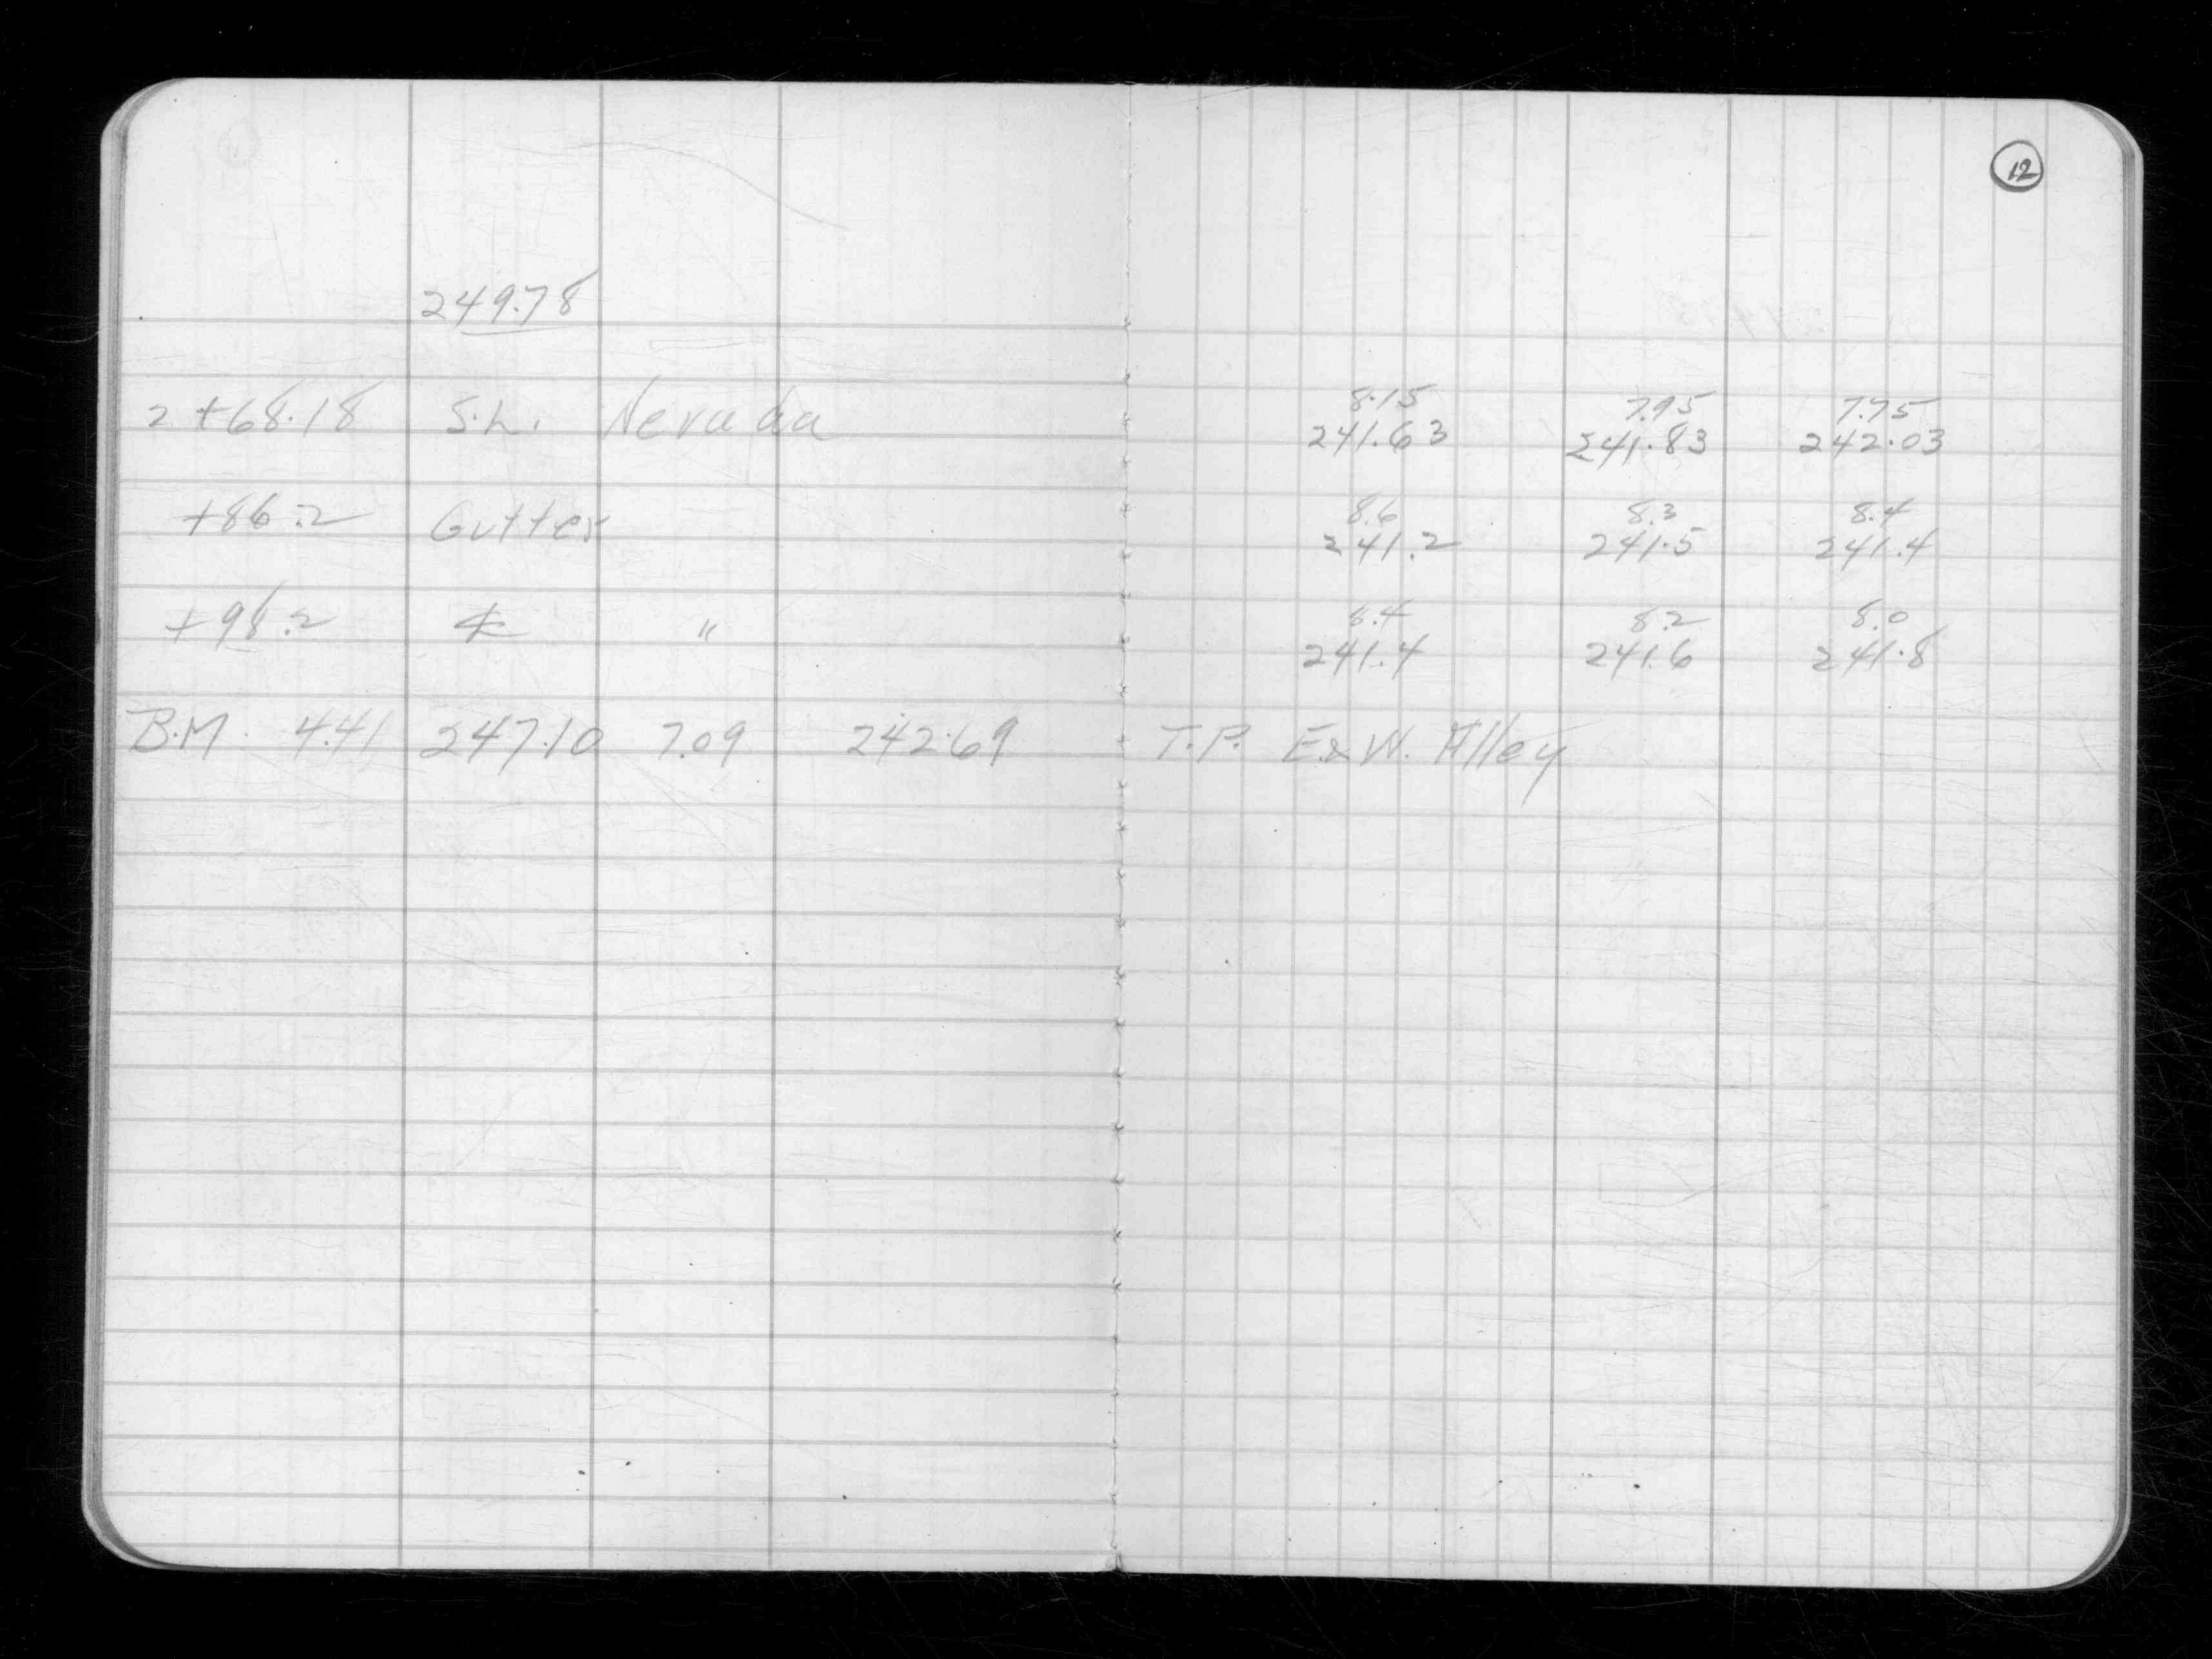 12
249.78
8.15 7.95 7.75
2+68.18 S.L. Nevada 241.63 241.83 242.03
8.6 8.3 8.4
+86.2 Gutter 241.2 241.5 241.4
8.4 8.2 8.0
+98.2 ℄ " 241.4 241.6 241.8
B.M. 4.41 247.10 7.09 242.69 T.P. E.&W. Alley